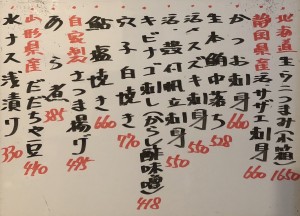 北海道生ウニつまみ(木箱) 1650
静岡県産活サザエ刺身 660
かつお刺身 660
生本鮪中落ち 528
活〆スズキ刺身 550
活・殻付帆立刺身 550
キビナゴ刺し(からし酢味噌) 418
穴子白焼き 770
鮎塩焼き 660
自家製さつま揚げ 495
あら煮 385
山形県産だだちゃ豆 440
水ナス浅漬け 330